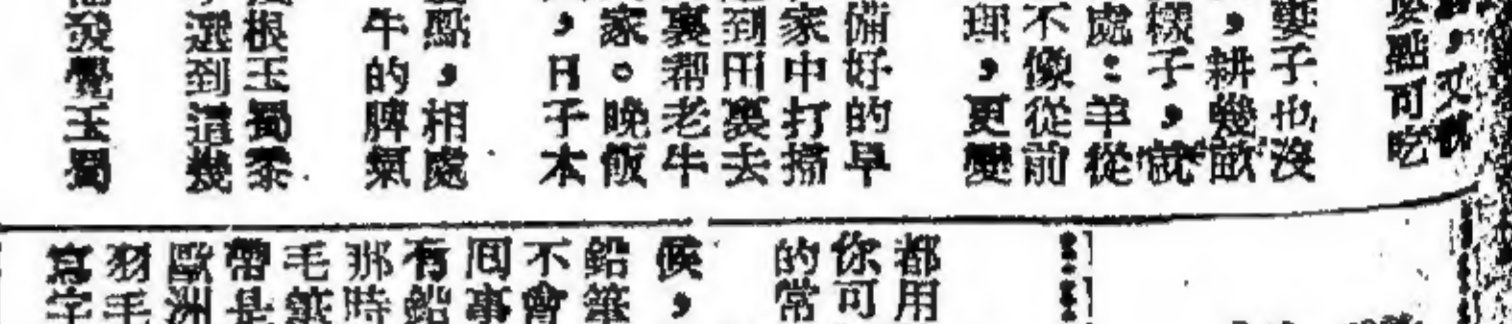 ，又
點可吃
妻子也沒
，耕幾畝
樣子，就
處：羊從
不像從前
理，更變
備好的早
家中打掃
到田裏去
裏帮老牛
家。晚飯
，日子本
點，相處
牛的脾氣
根玉蜀黍
選到這幾
發覺玉蜀
都用
你可
的常
候，
鉛筆
不會
囘事
有鉛
那時
毛筆
帶是
歐洲
羽毛
寫字